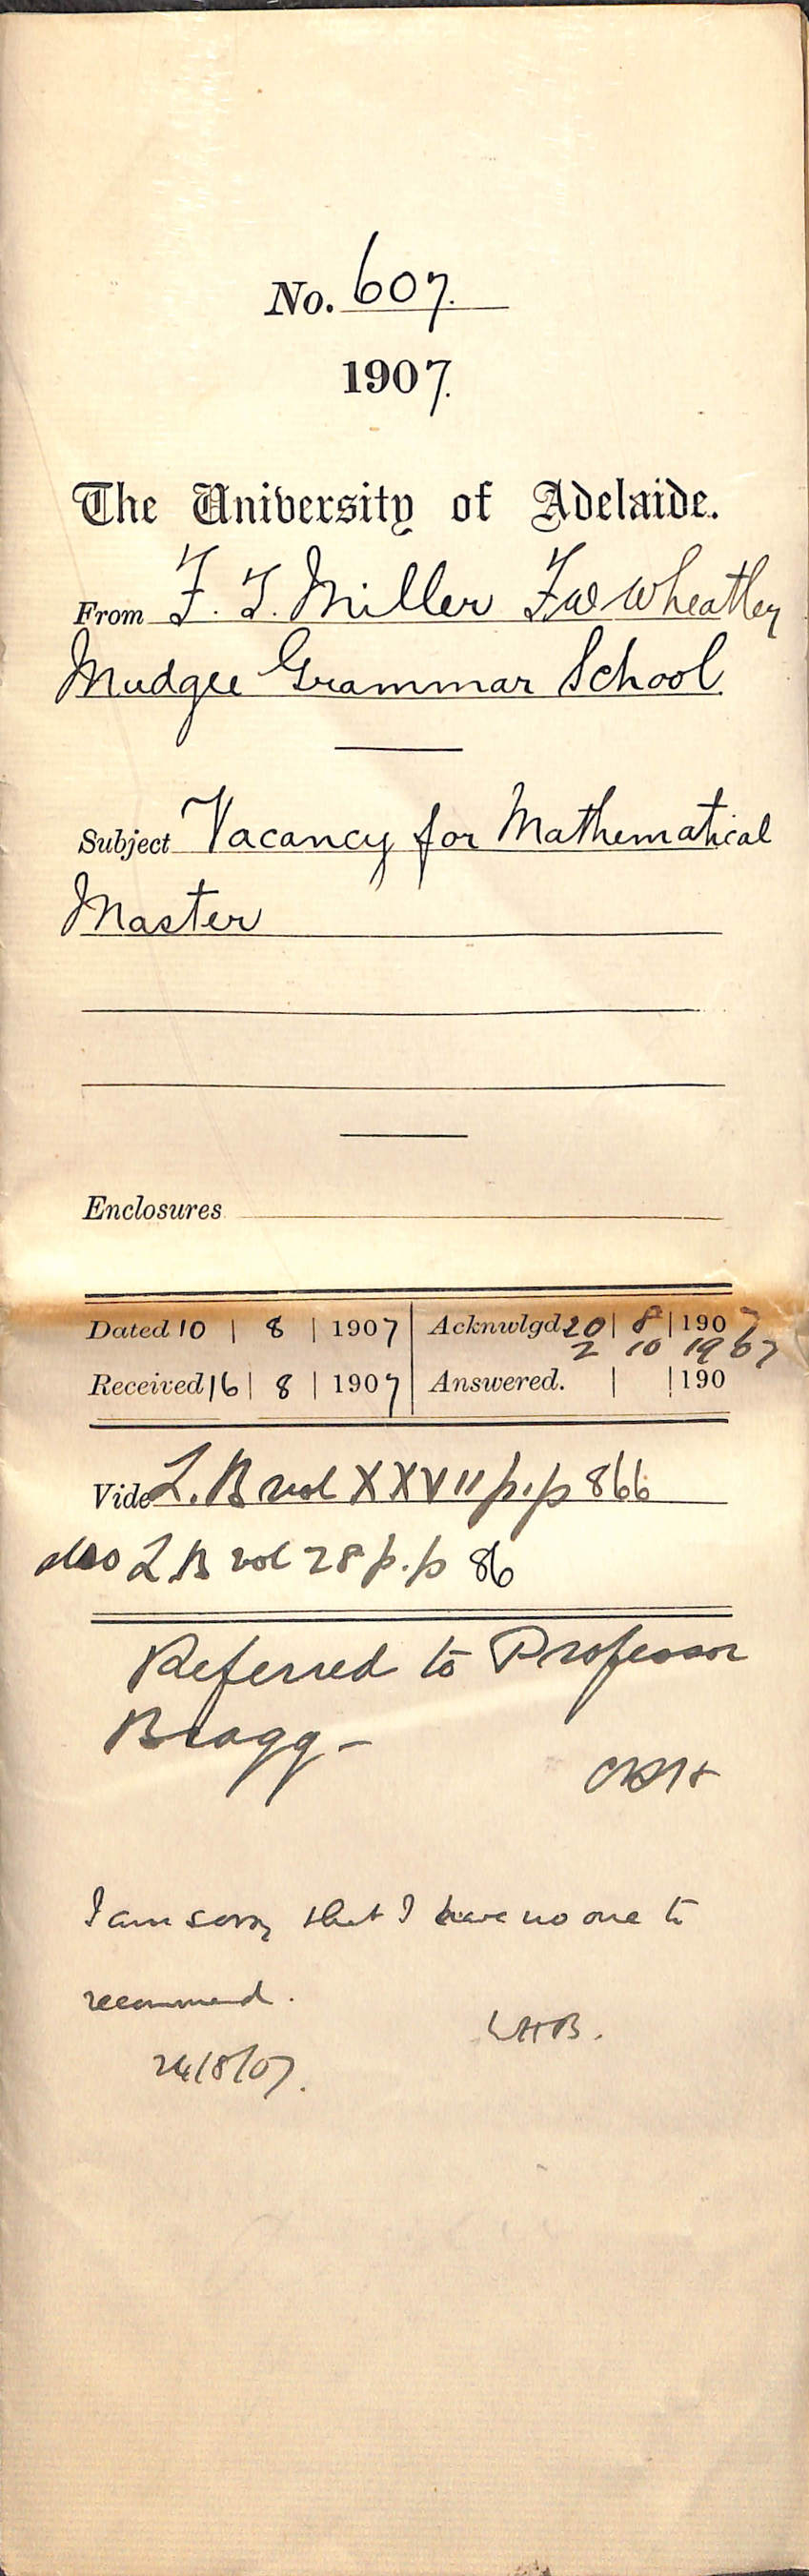 No. 607.
1907.
The University of Adelaide.
From F. T. Miller F W Wheatley
Mudgee Grammar School
Subject Vacancy for Mathematical
Master
Enclosures
Dated 10 | 8 | 1907 Acknwlgd 20 | 8 | 1907
2 10 1907
Received 16 | 8 | 1907 Answered. | | 190
Vide L. B vol XXVII p.p 866
also L B vol 28 p.p 86
Referred to Professor
Bragg -
I am sorry that I have no one to
recommend.
WHB.
24/8/07.